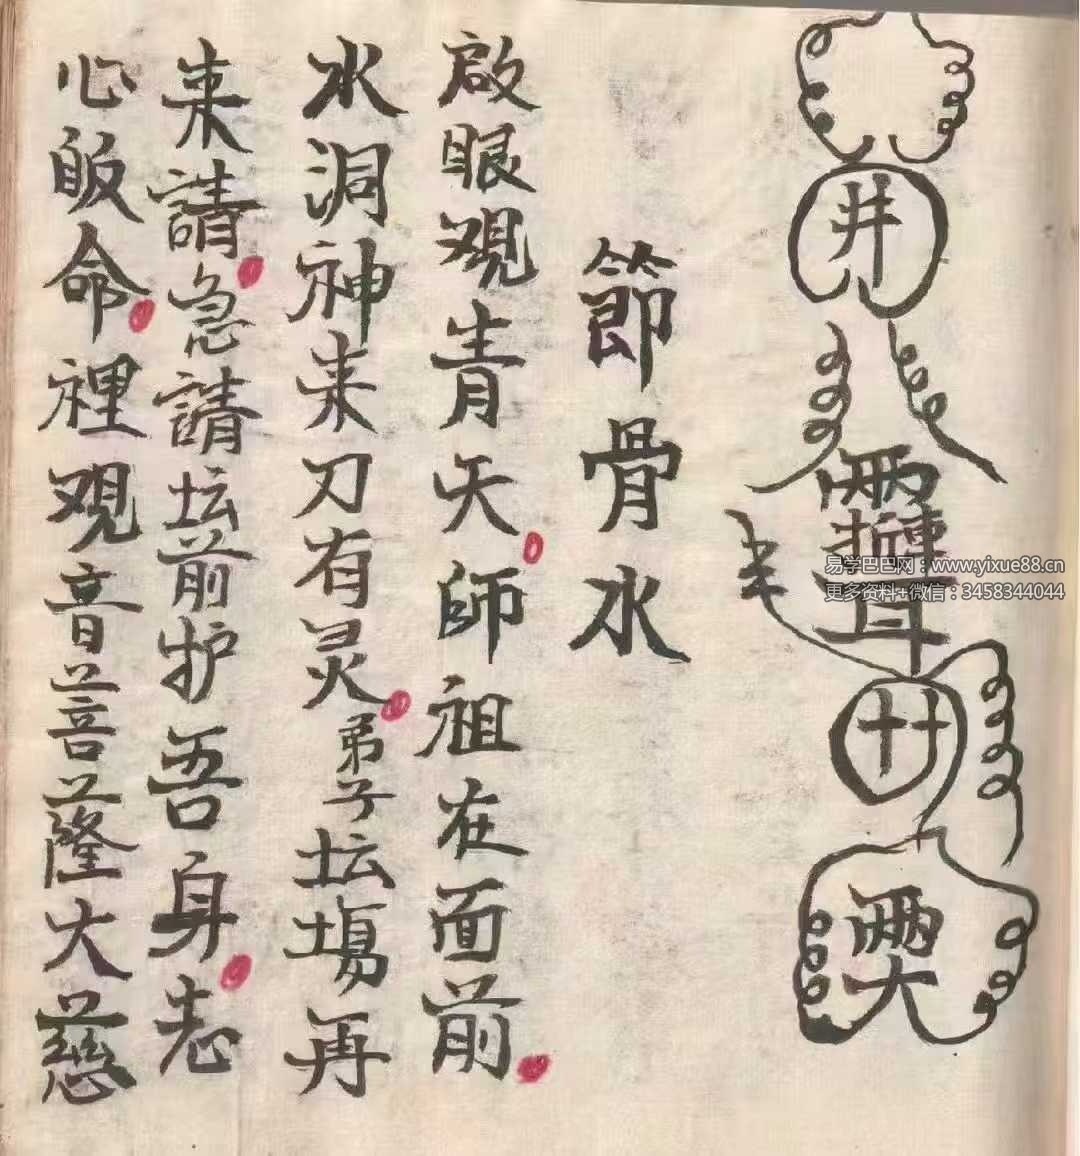 井
廿
易学巴巴网：www.yixue88.cn
更多资料+微信：3458344044
節骨水
啟眼观青天。師祖在面前。
水洞神来刃有灵。弟子坛場再
来請。急請坛前护吾身。志
心皈命。裡观音菩薩大慈